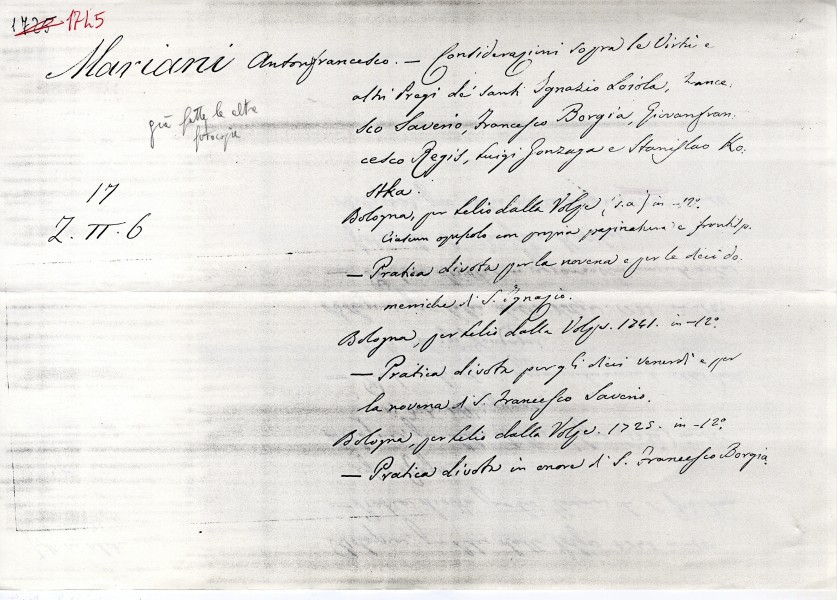 1725 1745
Mariani Antonfrancesco. — Considerazioni sopra le Virtù e
altri Pregi de' santi Ignazio Loiola, France:
sco Saverio, Francesco Borgia, Giovanfran:
cesco Regis, Luigi Gonzaga e Stanislao Ko:
stka.
già fatte le altre
fotocopie
17
Z. II. 6
Bologna, per Lelio dalla Volpe, (s.a) in -12°
Ciascun opuscolo con propria paginatura e frontisp.
— Pratica divota per la novena e per le dieci do:
meniche di S. Ignazio.
Bologna, per Lelio dalla Volpe. 1741. in -12°
— Pratica divota per gli dieci venerdì e per
la novena di S. Francesco Saverio.
Bologna, per Lelio dalla Volpe. 1725. in -12°
— Pratica divota in onore di S. Francesco Borgia